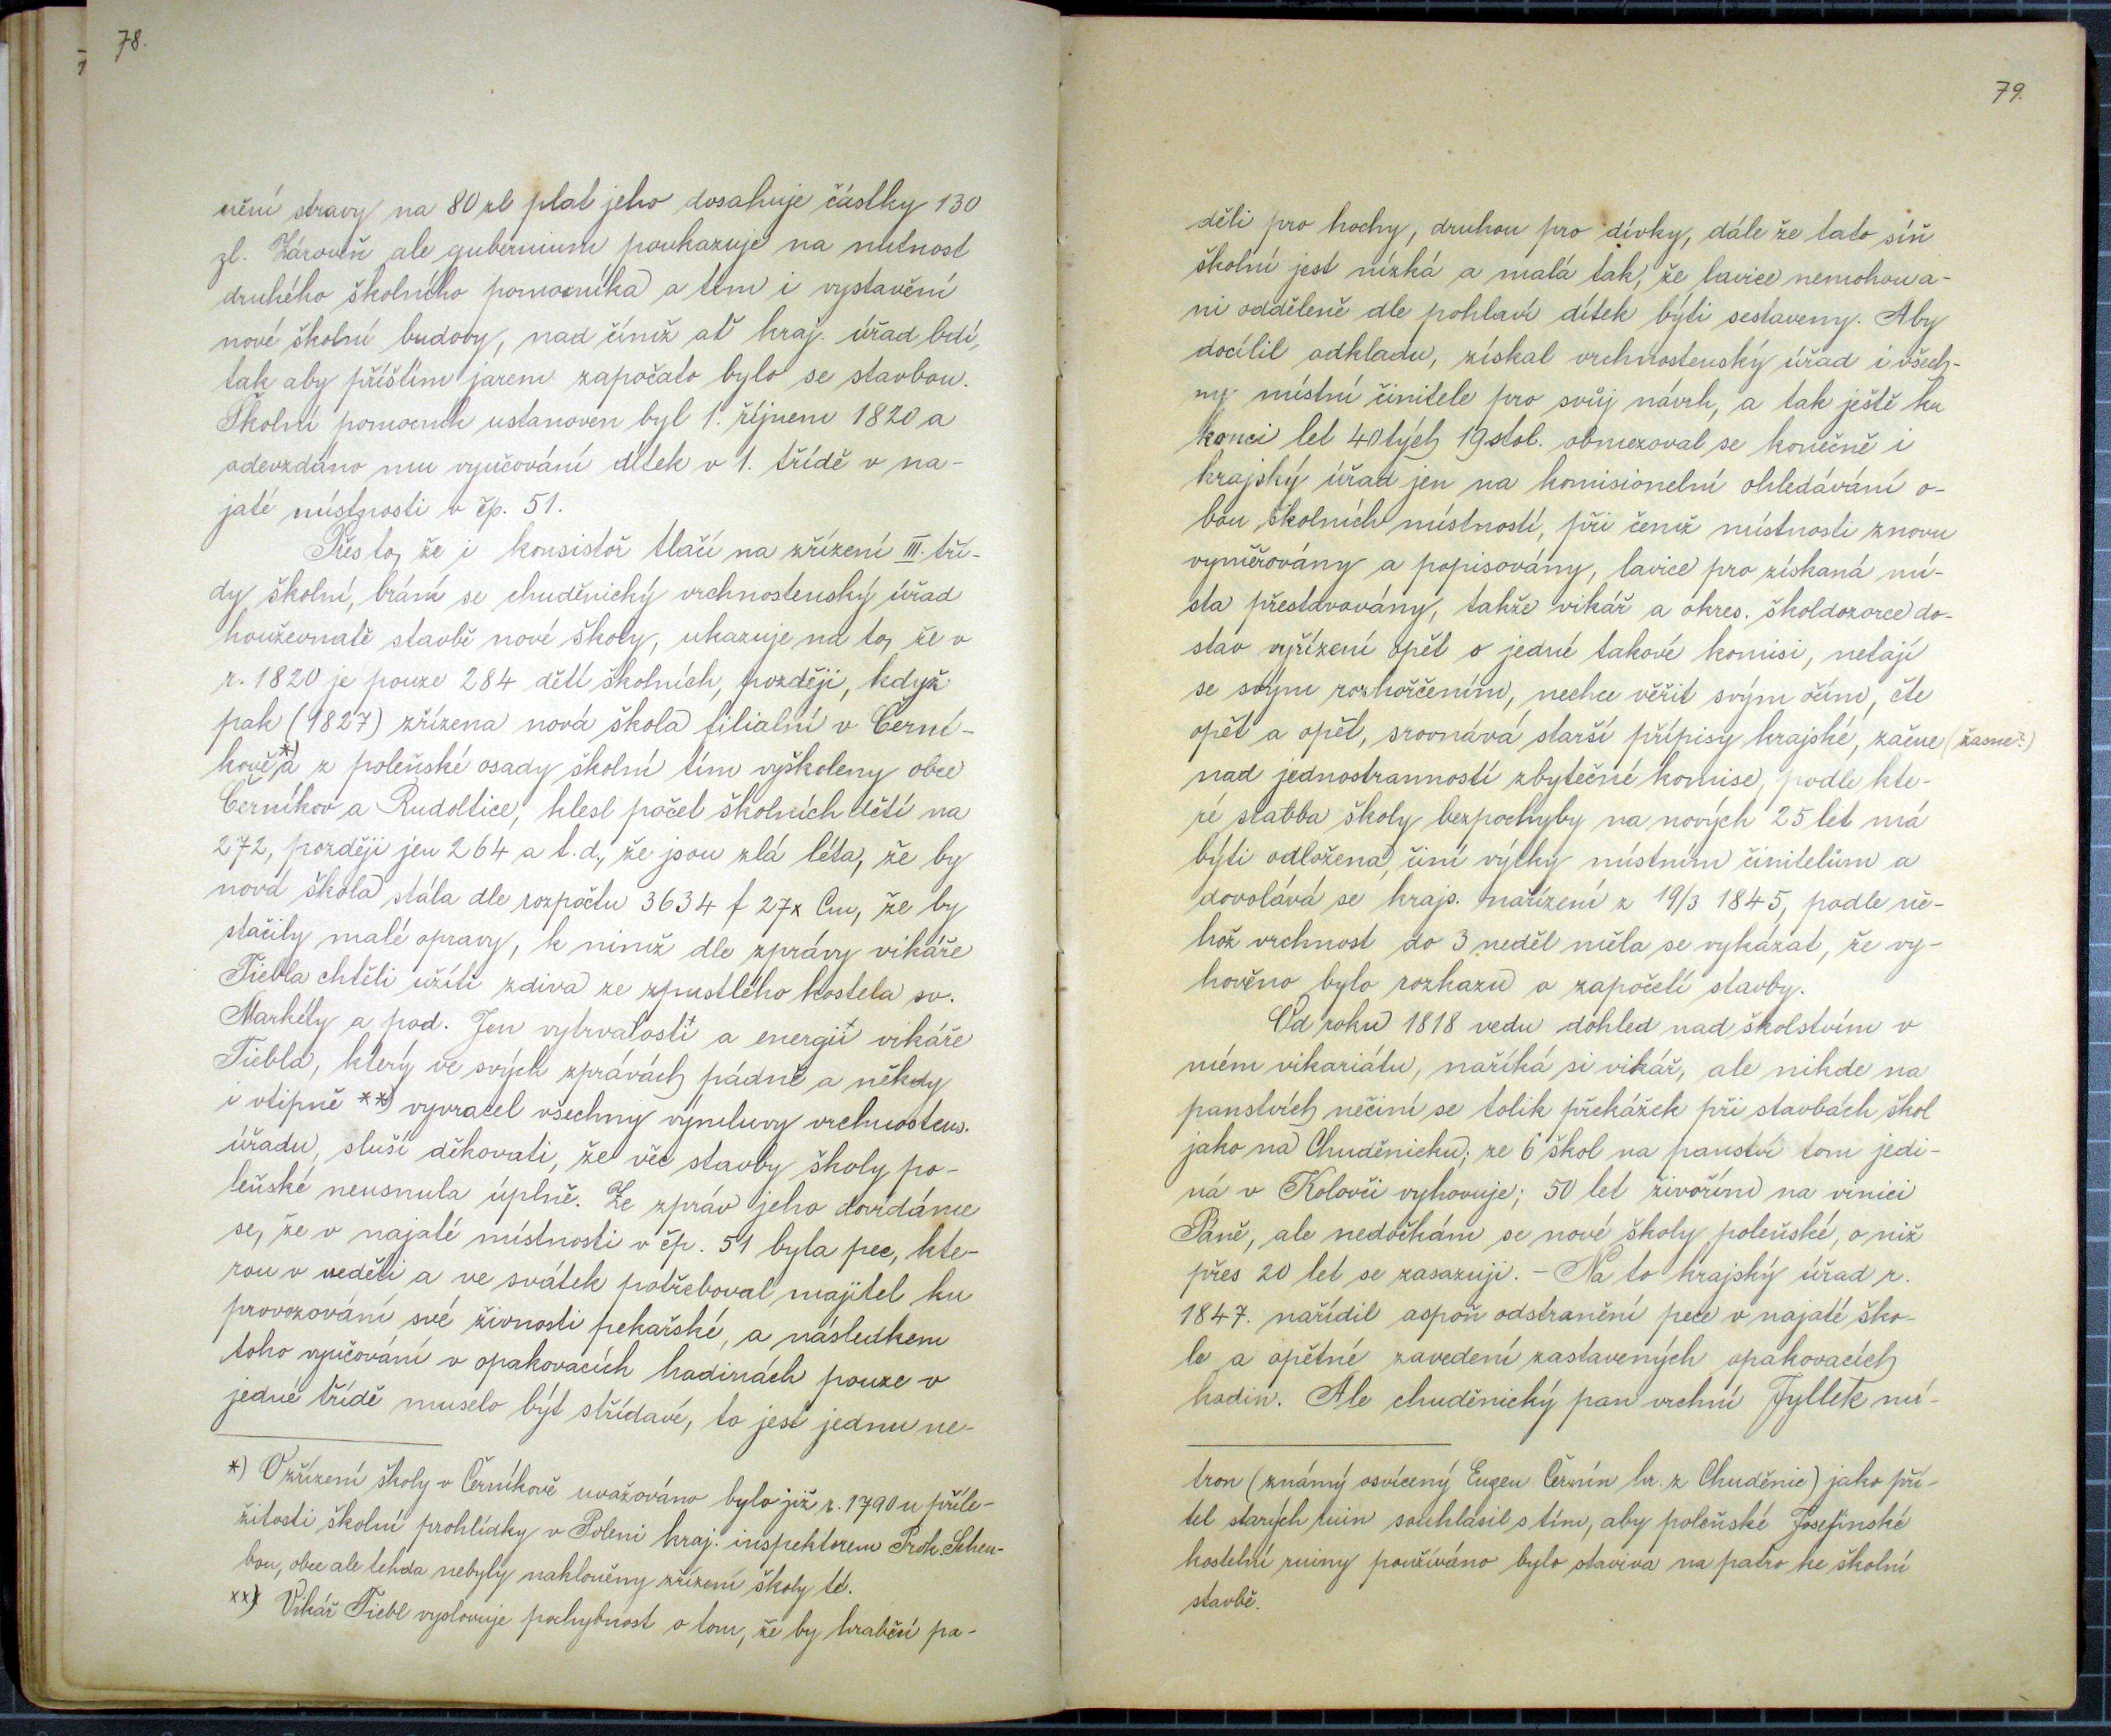 78.
nění stravy na 80 zl plat jeho dosahuje částky 130
zl. Zároveň ale gubernium poukazuje na nutnost
druhého školního pomocníka a tím i vystavění
nové školní budovy, nad čímž ať kraj. úřad bdí,
tak aby příštím jarem započato bylo se stavbou.
Školní pomocník ustanoven byl 1. říjnem 1820 a
odevzdáno mu vyučování dítek v 1. třídě v na-
jaté místnosti v čp. 51.
Přes to, že i konsistoř tlačí na zřízení III. tří-
dy školní, brání se chuděnický vrchnostenský úřad
houževnatě stavbě nové školy, ukazuje na to, že v
r. 1820 je pouze 284 dětí školních, později, když
pak (1827) zřízena nová škola filialní v Černí-
kově*) a z poleňské osady školní tím vyškoleny obce
Černíkov a Rudoltice, klesl počet školních dětí na
272, později jen 264 a t. d., že jsou zlá léta, že by
nová škola stála dle rozpočtu 3634 f 27x Cm, že by
stačily malé opravy, k nimž dle zprávy vikáře
Tiebla chtěli užíti zdiva ze zpustlého kostela sv.
Markéty a pod. Jen vytrvalosti a energii vikáře
Tiebla, který ve svých zprávách pádně a někdy
i vtipně **) vyvracel všechny výmluvy vrchnostens.
úřadu, sluší děkovati, že věc stavby školy po-
leňské neusnula úplně. Ze zpráv jeho dovídáme
se, že v najaté místnosti v čp. 51 byla pec, kte-
rou v neděli a ve svátek potřeboval majitel ku
provozování své živnosti pekařské, a následkem
toho vyučování v opakovacích hodinách pouze v
jedné třídě muselo být střídavé, to jest jednu ne-
*) O zřízení školy v Černíkově uvažováno bylo již r. 1790 u příle-
žitosti školní prohlídky v Poleni kraj. inspektorem Prok. Scheu-
bou, obce ale tehda nebyly nakloněny zřízení školy té.
xx) Vikář Tiebl vyslovuje pochybnost o tom, že by hraběcí pa-
79.
děli pro hochy, druhou pro dívky, dále že tato síň
školní jest nízká a malá tak, že lavice nemohou a-
ni odděleně dle pohlaví dítek býti sestaveny. Aby
docílil odkladu, získal vrchnostenský úřad i všech-
ny místní činitele pro svůj návrh, a tak ještě ku
konci let 40tých 19 stol. obmezoval se konečně i
krajský úřad jen na komisionelní ohledávání o-
bou školních místností, při čemž místnosti znovu
vyměřovány a popisovány, lavice pro získaná mí-
sta přestavovány, takže vikář a okres. školdozorce do-
stav vyřízení opět o jedné takové komisi, netají
se svým rozhořčením, nechce věřit svým očím, čte
opět a opět, srovnává starší přípisy krajské, začne (žasne?)
nad jednostranností zbytečné komise, podle kte-
ré stavba školy bezpochyby na nových 25 let má
býti odložena, činí výtky místním činitelům a
dovolává se krajs. nařízení z 19/3 1845, podle ně-
hož vrchnost do 3 neděl měla se vykázat, že vy-
hověno bylo rozkazu o započetí stavby.
Od roku 1818 vedu dohled nad školstvím v
mém vikariátu, naříká si vikář, ale nikde na
panstvích nečiní se tolik překážek při stavbách škol
jako na Chuděnicku; ze 6 škol na panství tom jedi-
ná v Kolovči vyhovuje; 50 let živořím na vinici
Páně, ale nedočkám se nové školy poleňské, o niž
přes 20 let se zasazuji. – Na to krajský úřad r.
1847. nařídil aspoň odstranění pece v najaté ško-
le a opětné zavedení zastavených opakovacích
hodin. Ale chuděnický pan vrchní Fyllek mí-
tron (známý osvícený Eugen Černín hr. z Chuděnic) jako pří-
tel starých ruin souhlasil s tím, aby poleňské Josefinské
kostelní ruiny používáno bylo staviva na patro ke školní
stavbě.